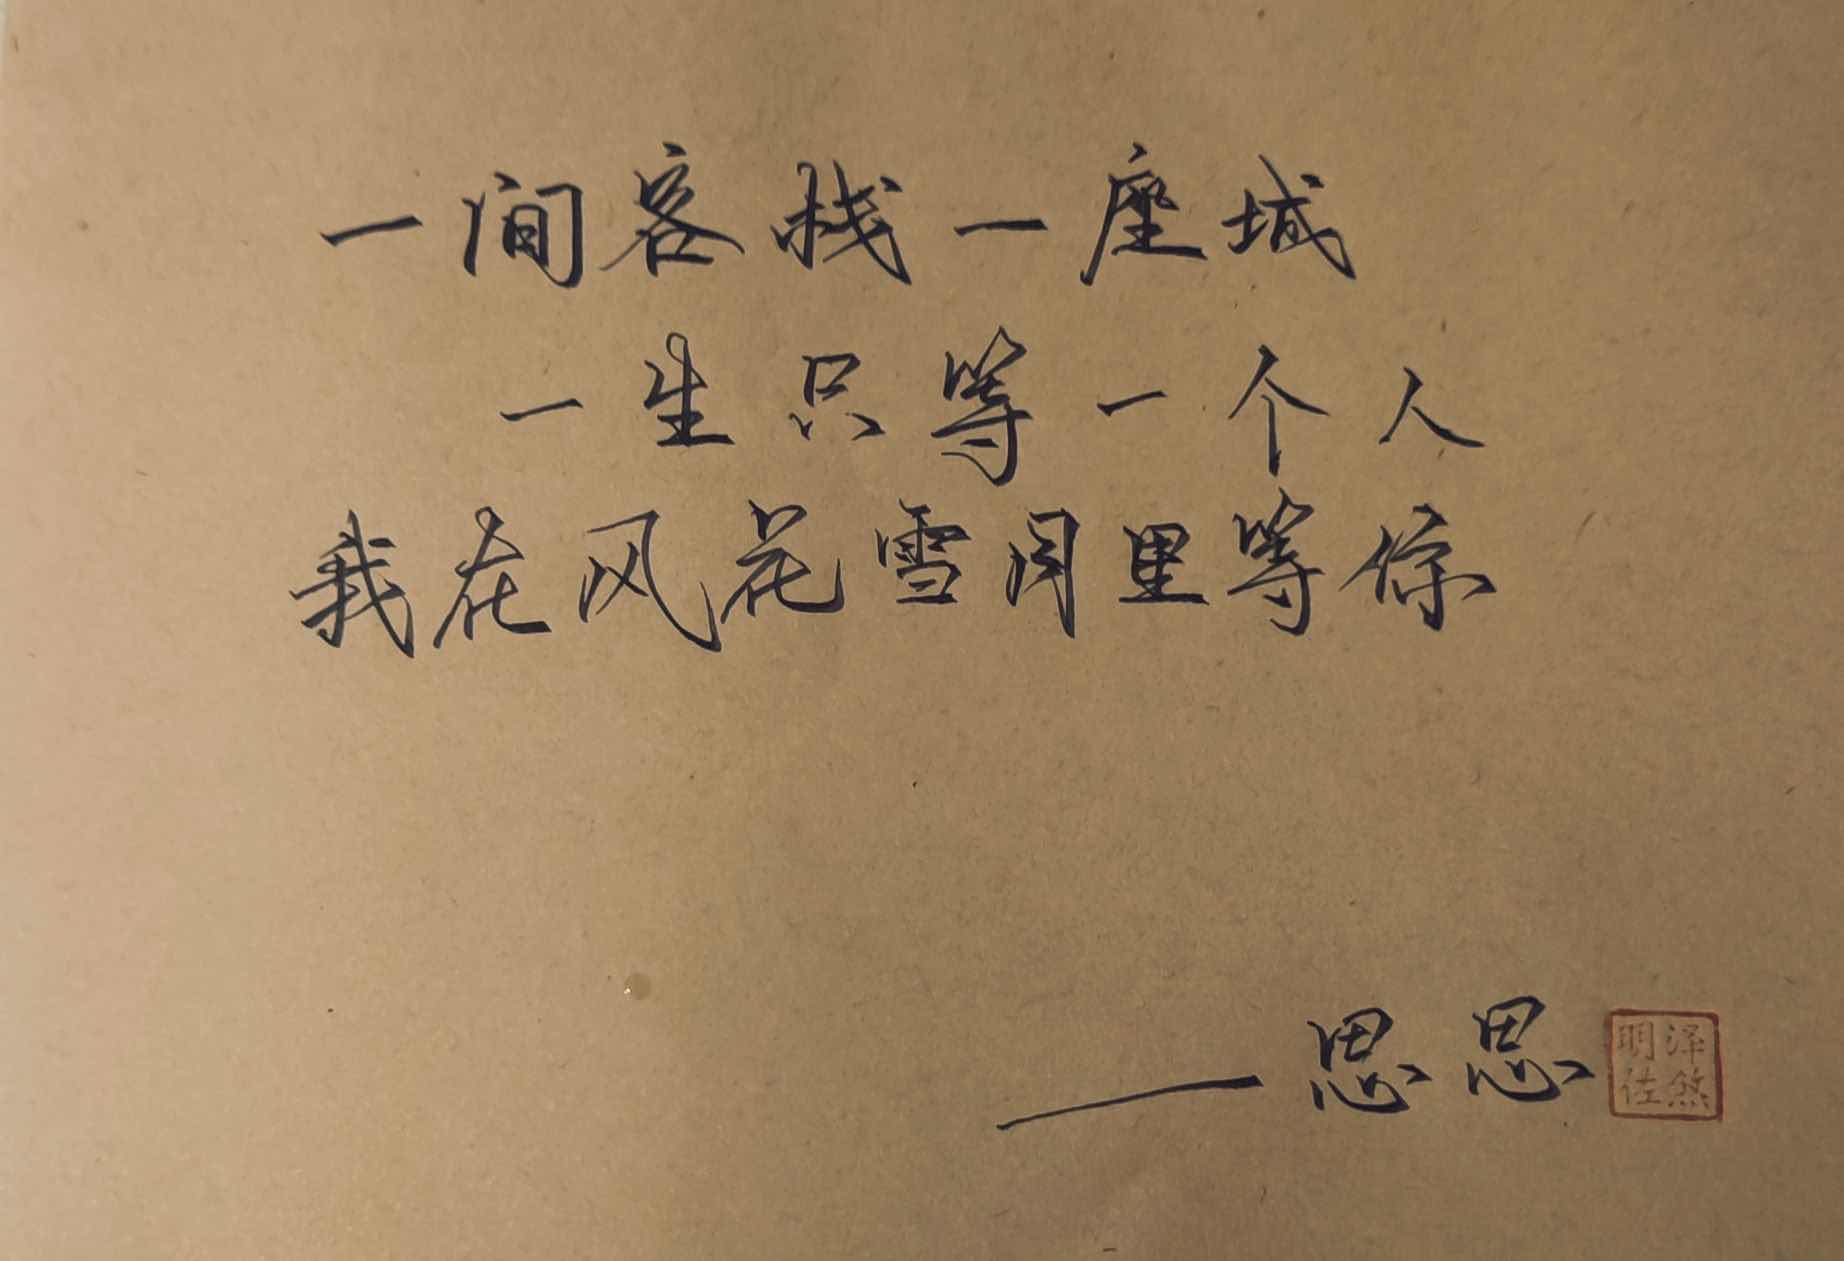 一间客栈一座城
一生只等一个人
我在风花雪月里等你
——思思